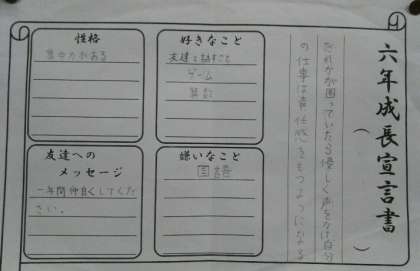 六年成長宣言書
(　　　)
だれかが困っていたら優しく声をかけ自分
の仕事は責任感をもつようにする
好きなこと
友達と話すこと
ゲーム
算数
嫌いなこと
国語
性格
集中力がある
友達への
メッセージ
一年間仲良くしてくだ
さい。